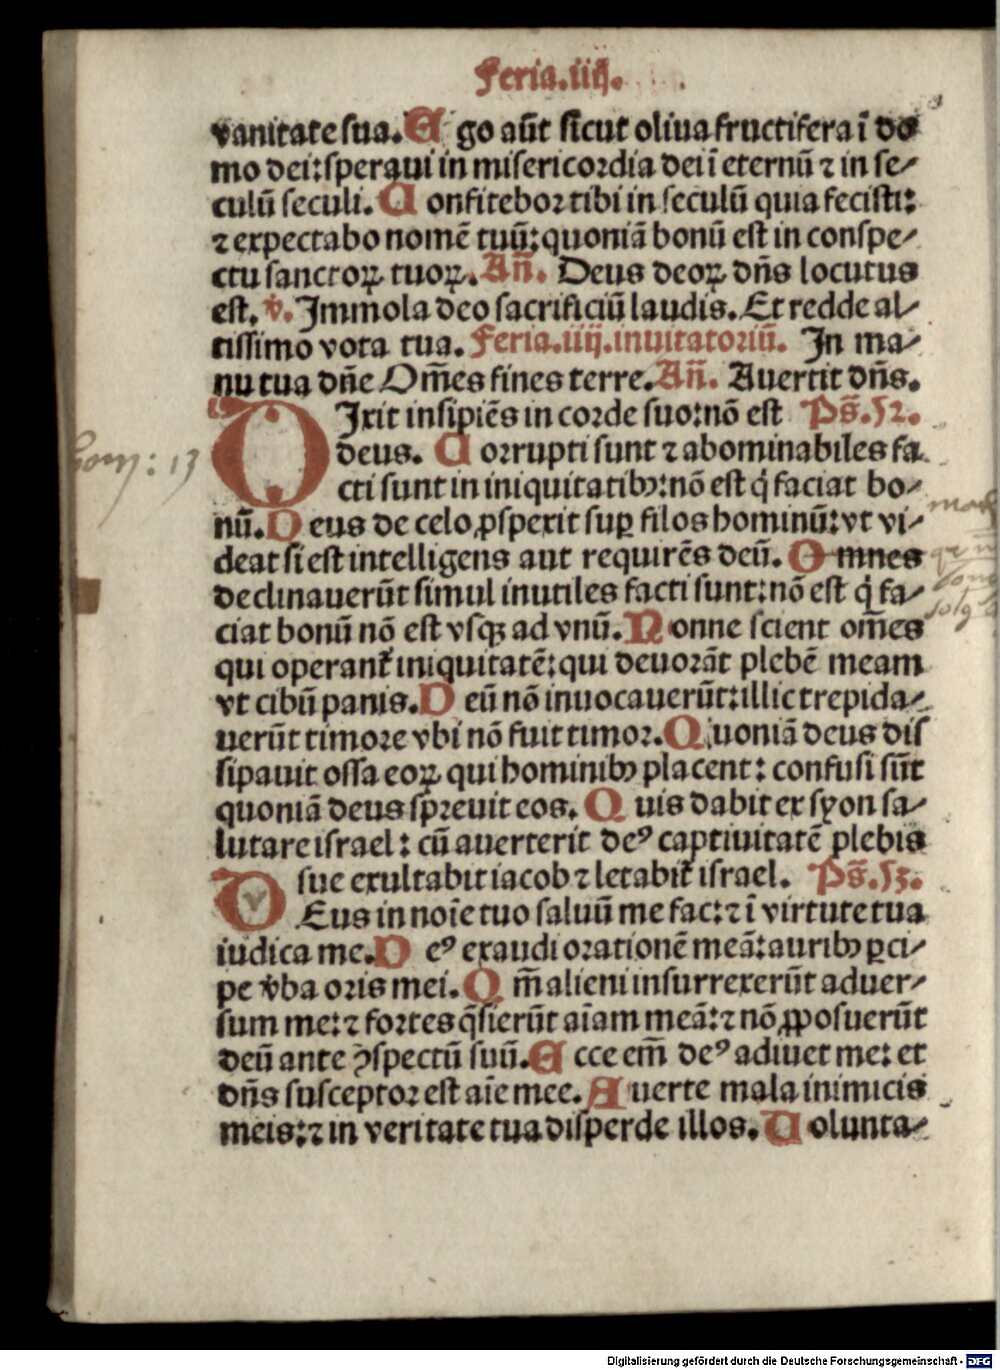 Feria.iiij.
vanitate sua. Ego aūt sicut oliua fructifera ī do
mo dei: speraui in misericordia dei ī eternū ⁊ in se/
culū seculi. Confitebor tibi in seculū quia fecisti:
⁊ expectabo nomē tuū: quoniā bonū est in conspe/
ctu sanctoꝝ tuoꝝ. Añ. Deus deoꝝ dñs locutus
est. ℣. Immola deo sacrificiū laudis. Et redde al/
tissimo vota tua. Feria.iiij.inuitatoriū. In ma/
nu tua dñe Om̄es fines terre. Añ. Auertit dñs.
DIxit insipiēs in corde suo: nō est Ps̄.52.
deus. Corrupti sunt ⁊ abominabiles fa
cti sunt in iniquitatibꝰ: nō est q̇ faciat bo/
nū. Deus de celo ꝓspexit suꝑ filos hominū: vt vi/
deat si est intelligens aut requirēs deū. Omnes
declinauerūt simul inutiles facti sunt: nō est q̇ fa/
ciat bonū nō est vsqꝫ ad vnū. Nonne scient om̄es
qui operant᷑ iniquitatē: qui deuorāt plebē meam
vt cibū panis. Deū nō inuocauerūt: illic trepida/
uerūt timore vbi nō fuit timor. Quoniā deus dis
sipauit ossa eoꝝ qui hominibꝰ placent: confusi sūt
quoniā deus spreuit eos. Quis dabit ex syon sa/
lutare israel: cū auerterit deꝰ captiuitatē plebis
sue exultabit iacob ⁊ letabit᷑ israel. Ps̄.53.
DEus in noīe tuo saluū me fac: ⁊ ī virtute tua
iudica me. Deꝰ exaudi orationē meā: auribꝰ ꝑci/
pe v̄ba oris mei. Qm̄ alieni insurrexerūt aduer/
sum me: ⁊ fortes q̄sierūt aīam meā: ⁊ nō ꝓposuerūt
deū ante ꝯspectū suū. Ecce em̄ deꝰ adiuet me: et
dñs susceptor est aīe mee. Auerte mala inimicis
meis: ⁊ in veritate tua disperde illos. Uolunta/
Digitalisierung gefördert durch die Deutsche Forschungsgemeinschaft - DFG